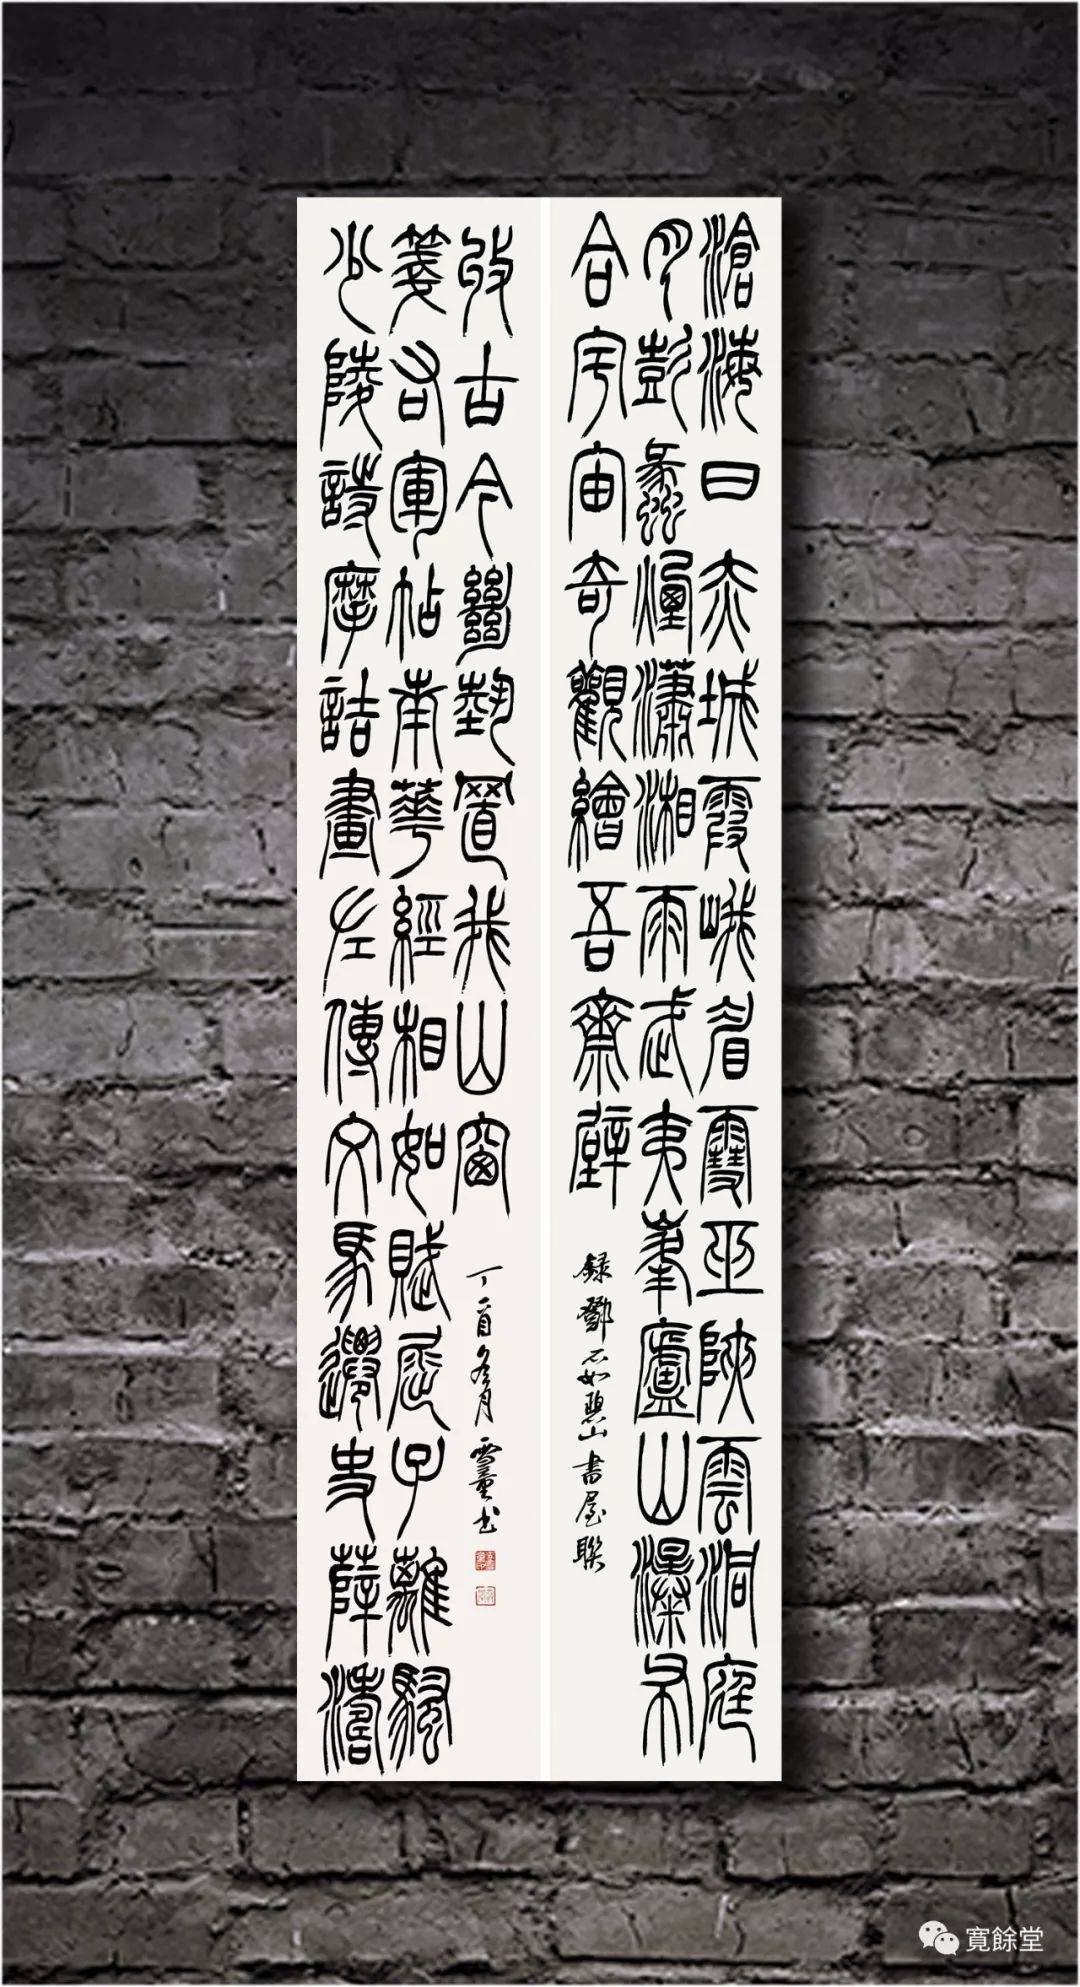 滄海日赤城霞峨眉雪巫陜雲洞庭
月彭蠡煙瀟湘雨武夷峯廬山瀑布
合宇宙奇觀繪吾齋壁
錄鄧石如碧山書屋聯
少陵詩摩詰畫左傳文馬遷史薛濤
箋右軍帖南華經相如賦屈子離騷
收古今絕埶置我山窗
丁酉冬月书
寬餘堂